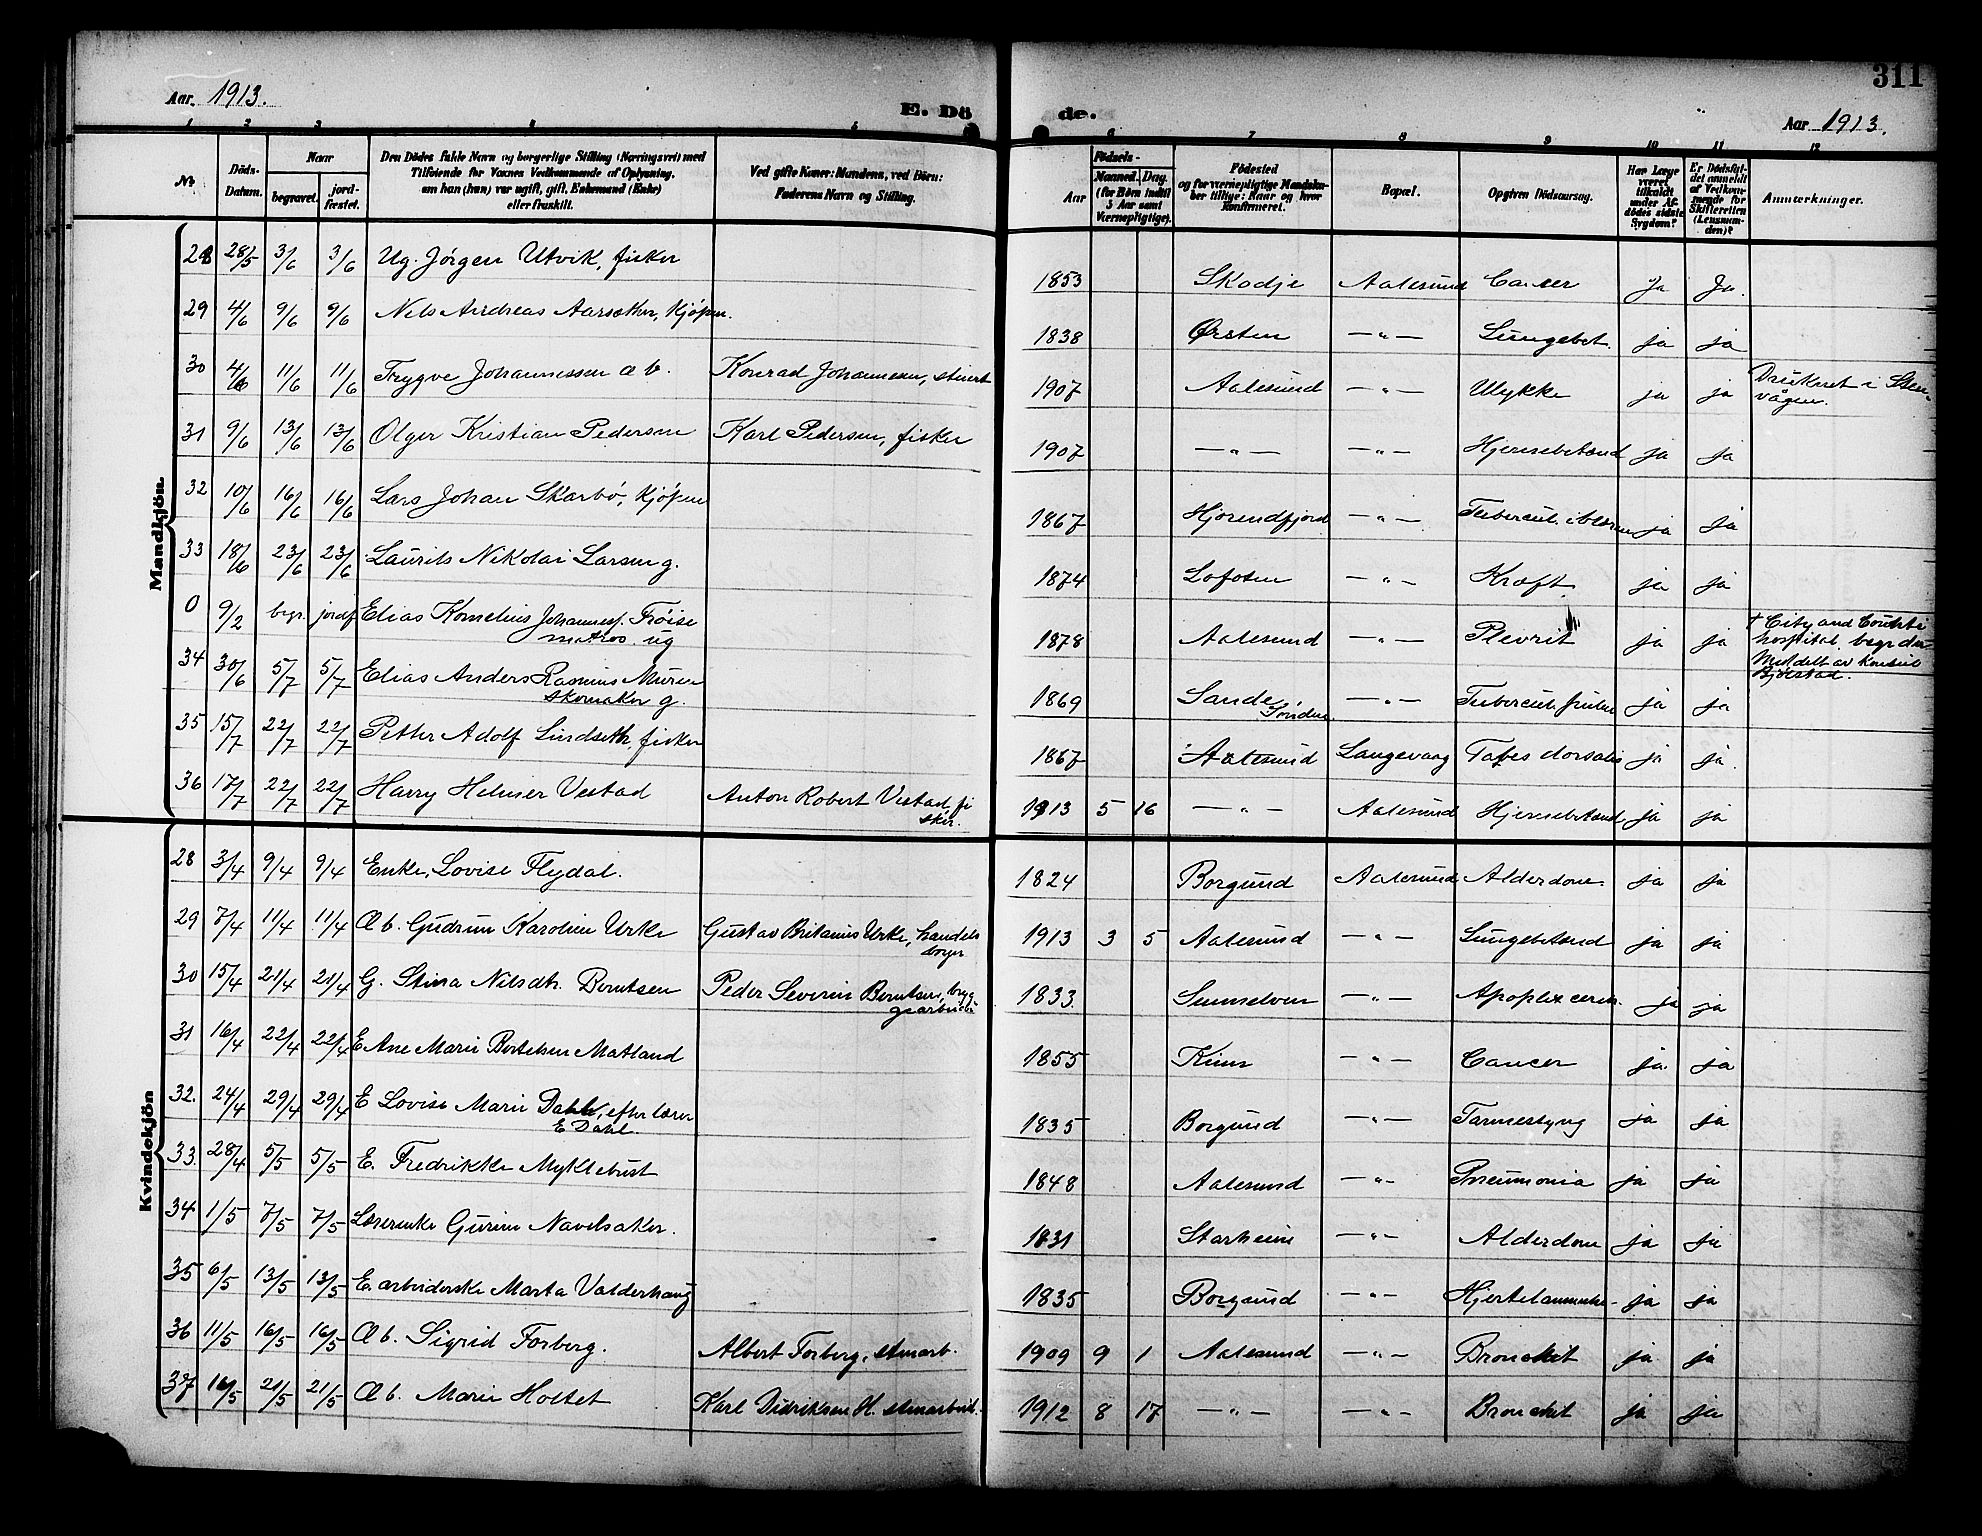 311
Aar. 1913.
E. Dö
de.
Aar 1913.
1 2 3 4 5 6 7 8 9 10 11 12
No
Döds-
Datum.
Naar
begravet.
jord-
fæstet.
Den Dödes fulde Navn og borgerlige Stilling (Næringsvei) med
Tilföiende for Voxnes Vedkommende af Oplysning,
om han (hun) var ugift, gift, Enkemand (Enke)
eller fraskilt.
Ved gifte Koner: Mandens, ved Börn:
Faderens Navn og Stilling.
Födsels-
Aar
Maaned. Dag.
(for Börn indtil
3 Aar samt
Værnepligtige).
Födested
og for værnepligtige Mandska-
ber tillige: Naar og hvor
Konfirmeret.
Bopæl.
Opgiven Dödsaarsag.
Har Læge
været
tilkaldt
under Af-
dödes sidste
Sygdom?
Er Dödsfal-
det anmeldt
af Vedkom-
mende for
Skifteretten
(Lensman-
den)?
Anmærkninger.
Mandkjön.
28 28/5 3/6 3/6 Ug. Jörgen Utvik, fisker 1853 Skodje Aalesund Cancer Ja Ja.
29 4/6 9/6 9/6 Nils Andreas Aarsæther, Kjöpm. 1838 Örsten —"— Lungebet. ja ja
30 4/6 11/6 11/6 Trygve Johannessen æb. Konrad Johannesen, stuert 1907 Aalesund —"— Ulykke ja ja Druknet i Sten-
vågen.
31 9/6 13/6 13/6 Olger Kristian Pedersen Karl Pedersen, fisker 1907 —"— —"— Hjernebetænd ja ja
32 10/6 16/6 16/6 Lars Johan Skarbö, Kjöpm 1867 Hjörendfjord —"— Tubercul. i blæren ja ja
33 18/6 23/6 23/6 Laurits Nikolai Larsen g. 1874 Lofoten —"— Kræft ja ja
0 9/2 begr. jordf Elias Kornelius Johannesf. Fröise
matros ug 1878 Aalesund —"— Plevrit ja ja † City and Countti
hospital, begr der
Meddelt av konsul
Bjölstad.
34 30/6 5/7 5/7 Elias Anders Rasmus Muren
skomaker g. 1869 Sande
Söndm. —"— Tubercul. pulm ja ja
35 15/7 22/7 22/7 Petter Adolf Lindseth, fisker 1867 Aalesund Langevaag Tabes dorsalis ja ja.
36 17/7 22/7 22/7 Harry Helmer Vestad Anton Robert Vestad, fi
sker. 1913 5 16 —"— Aalesund Hjernebetænd ja ja
Kvindekjön
28 3/4 9/4 9/4 Enke, Lovise Flydal. 1824 Borgund Aalesund Alderdom. ja ja
29 7/4 11/4 11/4 Æb. Gudrun Karoline Urke Gustav Britanius Urke, handels
borger 1913 3 5 Aalesund —"— Lungebetænd ja ja
30 15/4 21/4 21/4 G. Stina Nilsdtr. Berntsen Peder Severin Berntsen, bryg-
gearbeider 1833. Sunnelven —"— Apoplex cereb. ja ja
31 16/4 22/4 22/4 E Ane Marie Bertelsen Matland 1855 Kinn —"— Cancer ja ja
32. 24/4 29/4 29/4 E Lovise Marie Dahle, efter lærer
E Dahl 1835 Borgund —"— Tarmeslyng ja ja
33 28/4 5/5 5/5 E. Fredrikke Myklebust 1848 Aalesund —"— Pneumonia ja ja
34 1/5 7/5 7/5 Lærerenke Gurine Navelsaker. 1831 Starheim —"— Alderdom ja ja
35 6/5 13/5 13/5 E. arbeiderske Marta Valderhaug 1835 Borgund —"— Hjertelammelse ja ja
36 11/5 16/5 16/5 Æb. Sigrid Forberg. Albert Forberg, stenarb. 1909 9 1 Aalesund —"— Bronchit ja ja
37 16/5 21/5 21/5 Æb. Marie Holtet Karl Didriksen H. stenarbeid. 1912 8 17 —"— —"— Bronchit ja ja